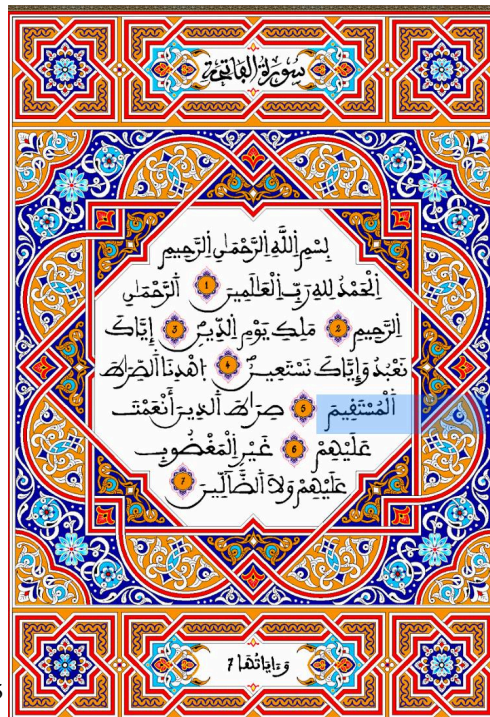 سُورَةُ الْفَاتِحَةِ
بِسْمِ اِ۬للَّهِ اِ۬لرَّحْمَٰنِ اِ۬لرَّحِيمِ
اِ۬لْحَمْدُ لِلهِ رَبِّ اِ۬لْعَٰلَمِينَ 1 اَ۬لرَّحْمَٰنِ
اِ۬لرَّحِيمِ 2 مَلِكِ يَوْمِ اِ۬لدِّينِ 3 إِيَّاكَ
نَعْبُدُ وَإِيَّاكَ نَسْتَعِينُ 4 اُ۪هْدِنَا اَ۬لصِّرَٰطَ
اَ۬لْمُسْتَفِيمَ 5 صِرَٰطَ اَ۬لذِينَ أَنْعَمْتَ
عَلَيْهِمْ 6 غَيْرِ اِ۬لْمَغْضُوبِ
عَلَيْهِمْ وَلَا اَ۬لضَّآلِّينَ 7
وَءَايَاتُهَا 7